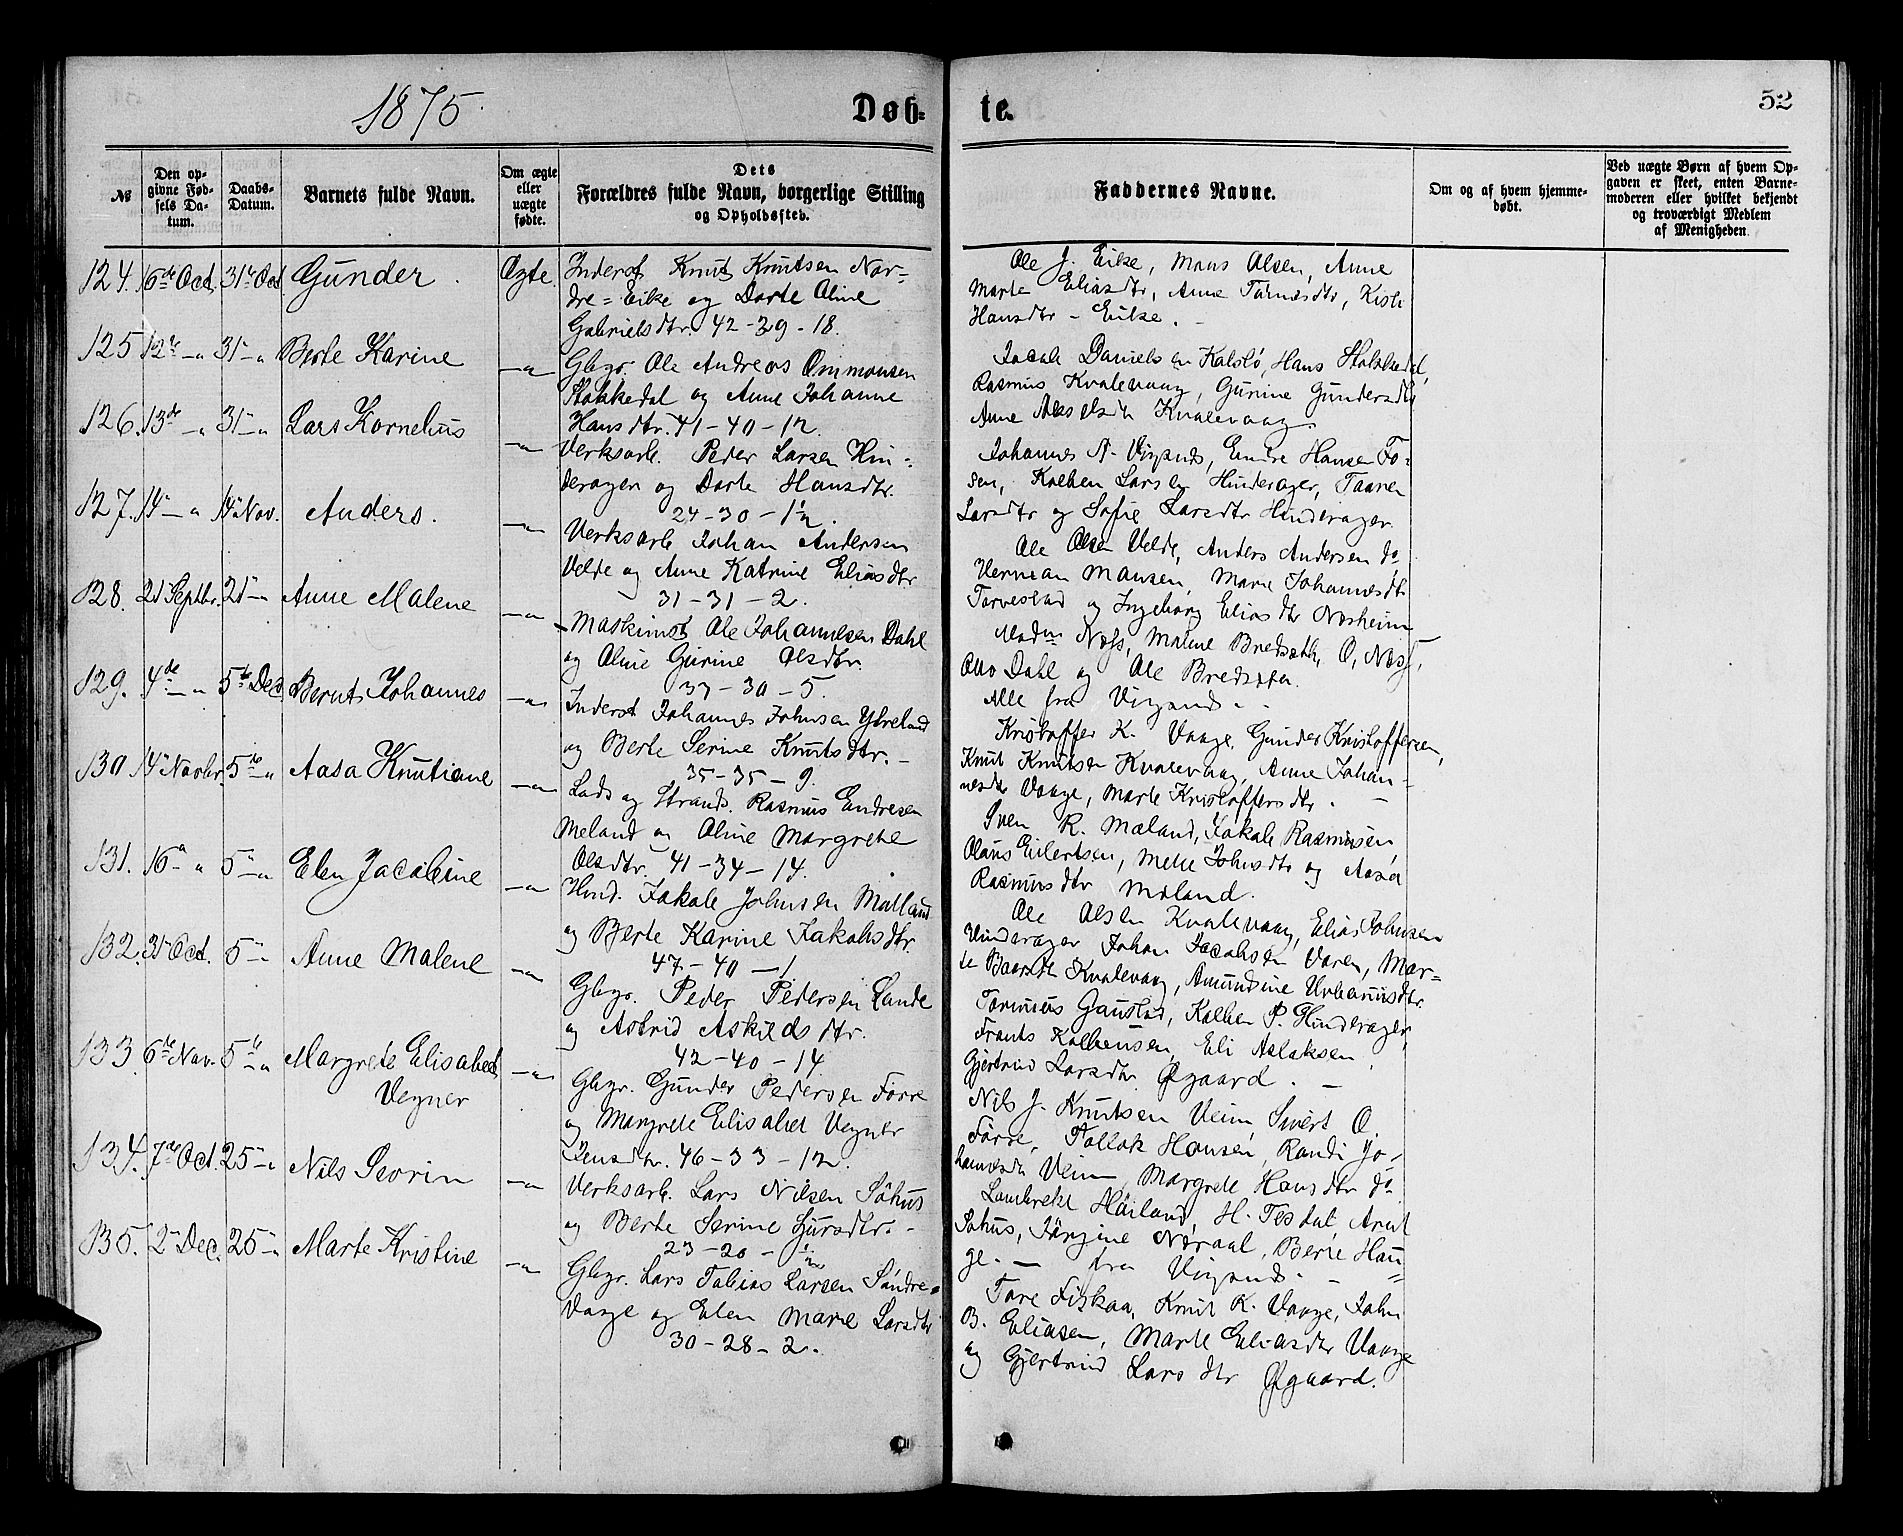 1875.
Døb-
te.
52
№
Den op-
givne Fød-
sels Da-
tum.
Daabs-
Datum.
Barnets fulde Navn.
Om ægte
eller
uægte
fødte.
Dets
Forældres fulde Navn, borgerlige Stilling
og Opholdssted.
Faddernes Navne.
Om og af hvem hjemme-
døbt.
Ved uægte Børn af hvem Op-
gaven er skeet, enten Barne-
moderen eller hvilket bekjendt
og troværdigt Medlem
af Menigheden.
124. 6te Oct. 31te Oct Gunder. Ægte
Inderst Knut Knutsen Nor-
dre-Eike og Dorte Oline
Gabrielsdtr. 42-39-18.
Ole J. Eike, Mons Olsen, Anne
Marte Eliasdtr, Anne Tørresdtr,
Hansdtr - Eike.
125 12te -"- 31 -"- Berte Karine -"-
Gbgr. Ole Andreas Ommonsen
Stokkedal og Anne Johanne
Hansdtr. 41-40-12.
Jacob Danielsen Kalstø, Hans Stokkedal,
Rasmus Kvalevaag, Gurine Gundersdtr
Anne Kvalevaag.
126. 13de -"- 31 -"- Lars Kornelius -"-
Verksarb. Peder Larsen Hin-
derager og Dorte Hansdtr.
24-30-1½.
Johannes A. Vigsnes, Endre Hansen Fo-
sen, Kolben Larsen Hinderager, Taaren
Larsdtr og Sofie Larsdtr Hinderager.
127. 14 -"- 14 Nov. Anders. -"-
Verksarb Johan Andersen
Velde og Anne Katrine Eliasdtr
31-31-2.
Ole Olsen Velde, Anders Andersen do
Herman Monsen, Marie Johannesdtr
Torvestad og Ingeborg Eliasdtr Nesheim
128. 21 Septbr. 21 -"- Anne Malene -"-
Maskinist Ole Johannesen Dahl
og Oline Gurine Olsdtr.
33-30-5.
Madm Næss, Malene Bredsæth, O. Næss,
Otto Dahl og Ole Bredsæter.
Alle fra Vigsnes.
129. 4de -"- 5te Dec Bernt Johannes -"-
Inderst Johannes Johnsen Ytreland
og Berte Serine Knutsdtr.
35-35-9.
Kristoffer K. Vaage, Gunder Kristoffersen,
Knut Knutsen Kvalevaag, Anne Johan-
nesdtr Vaage, Marte Kristoffersdtr.
130. 14 Novbr. 5te -"- Aasa Knutiane -"-
Lods og Strands. Rasmus Endresen
Meland og Oline Margrethe
Olsdtr. 41-34-14.
Sven R. Mæland, Jakob Rasmusen,
Olaus Eilertsen, Mette Johnsdtr og Aasa
Rasmusdtr Mæland.
131. 16 -"- 5 -"- Elen Jacobine -"-
Hmd. Jakob Johnsen Matland
og Berte Karine Jakobsdtr.
47-40-1
Ole Olsen Kvalevaag, Elias Johnsen
Hinderager Johan Jacobsen Varen, Mar-
te Kvalevaag, Amundine Urbanusdtr.
132. 31 Oct. 5 -"- Anne Malene -"-
Gbgr. Peder Pedersen Lande
og Astrid Askildsdtr.
42-40-14
Tormius Gaustad, Kolben P. Hinderager,
Frants Kolbensen, Eli Aslaksen
Gjertrud Larsdtr Øgaard.
133. 6te Nov. 5te -"- Margrete Elisabed -"-
Vegner
Gbgr. Gunder Pedersen Førre
og Margrete Elisabed Vegner
Jensdtr. 46-33-12.
Nils J. Knutsen Veim, Sivert O.
Førre, Tollak Hansen, Randi Jo-
hannesdtr Veim, Margrete Hansdtr do
134. 7de Oct. 25 -"- Nils Severin -"-
Verksarb. Lars Nilsen Søhus
og Berte Serine Sjursdtr.
23-20-½
Lambrekt Høiland, H. Tesdal,
Søhus, Jørgine Nordal, Berte Hau-
ge. fra Vigsnes.
135. 2 Dec. 25 -"- Marte Kristine -"-
Gbgr. Lars Tobias Larsen Søndre-
Vaage og Elen Marie Larsdtr
30-28-2.
Tore Fiskaa, Knut K. Vaage, John
B. Eliasen, Marte Eliasdtr Vaage
og Gjertrud Larsdtr Øgaard.